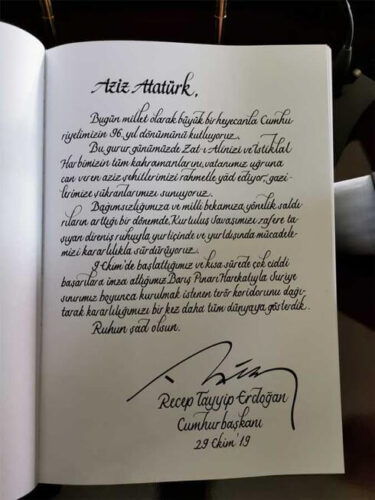 Aziz Atatürk,
Bugün millet olarak büyük bir heyecanla Cumhu
riyetimizin 96. yıl dönümünü kutluyoruz.
Bu gurur günümüzde Zat-ı Alinizi ve İstiklal
Harbimizin tüm kahramanlarını, vatanımız uğruna
can veren aziz şehitlerimizi rahmetle yâd ediyor, gazi-
lerimize şükranlarımızı sunuyoruz.
Bağımsızlığımıza ve milli bekamıza yönelik saldı
rıların arttığı bir dönemde, Kurtuluş Savaşımızı zafere ta
şıyan direniş ruhuyla yurtiçinde ve yurtdışında mücadele-
mizi kararlılıkla sürdürüyoruz.
9 Ekim'de başlattığımız ve kısa sürede çok ciddi
başarılara imza attığımız Barış Pınarı Harekatıyla Suriye
sınırımız boyunca kurulmak istenen terör koridorunu dağı-
tarak kararlılığımızı bir kez daha tüm dünyaya gösterdik.
Ruhun şad olsun.
Recep Tayyip Erdoğan
Cumhurbaşkanı
29 Ekim '19